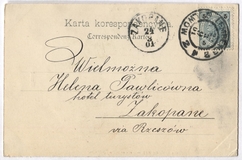 Karta korespondencyjna
Correspondenz-Karte
ZAKOPANE
24
8
01
Widmożna
Helena Pawlicówna
hotel turystów
Zakopane
via Rzeszów